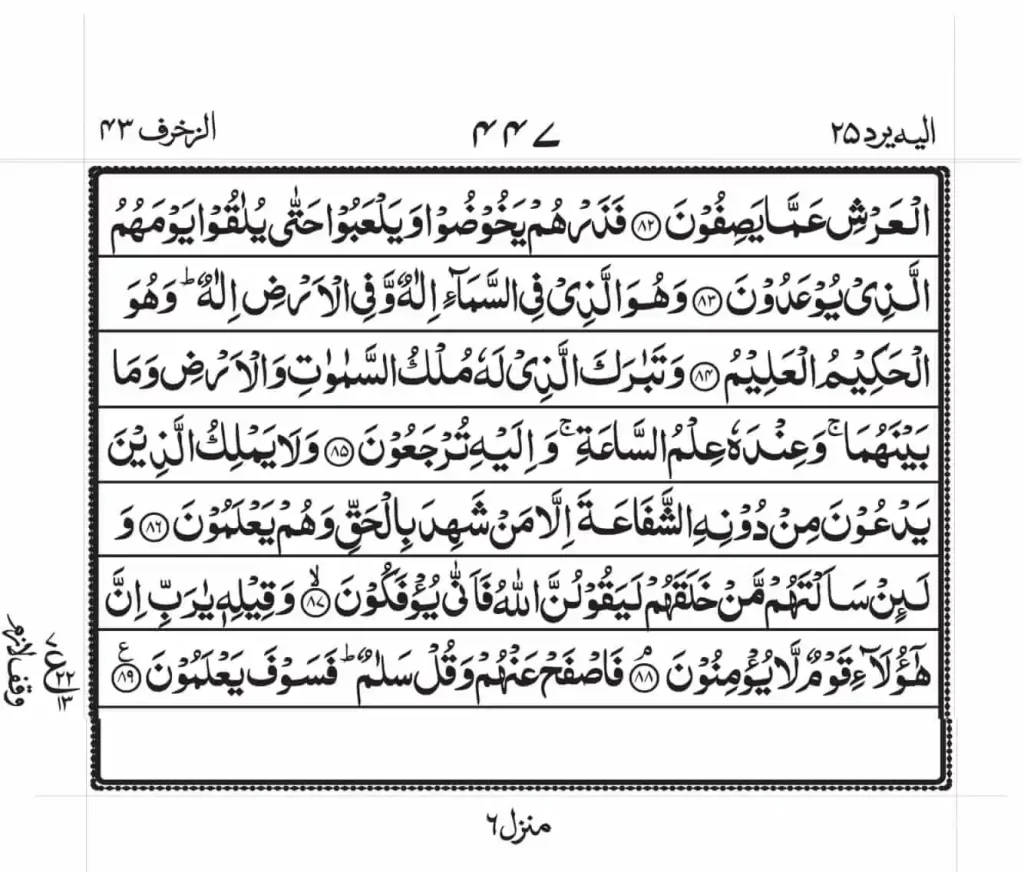 اليه يرد ٢٥ ٤٤٧ الزخرف ٤٣
الْعَرْشِ عَمَّا يَصِفُوْنَ ﴿۸۲﴾ فَذَرْهُمْ يَخُوْضُوْا وَيَلْعَبُوْا حَتّٰى يُلٰقُوْا يَوْمَهُمُ
الَّذِىْ يُوْعَدُوْنَ ﴿۸۳﴾ وَهُوَ الَّذِىْ فِى السَّمَآءِ اِلٰهٌ وَّفِى الْاَرْضِ اِلٰهٌ ؕ وَهُوَ
الْحَكِيْمُ الْعَلِيْمُ ﴿۸۴﴾ وَتَبٰرَكَ الَّذِىْ لَهٗ مُلْكُ السَّمٰوٰتِ وَالْاَرْضِ وَمَا
بَيْنَهُمَا ۚ وَعِنْدَهٗ عِلْمُ السَّاعَةِ ۚ وَاِلَيْهِ تُرْجَعُوْنَ ﴿۸۵﴾ وَلَا يَمْلِكُ الَّذِيْنَ
يَدْعُوْنَ مِنْ دُوْنِهِ الشَّفَاعَةَ اِلَّا مَنْ شَهِدَ بِالْحَقِّ وَهُمْ يَعْلَمُوْنَ ﴿۸۶﴾ وَ
لَئِنْ سَاَلْتَهُمْ مَّنْ خَلَقَهُمْ لَيَقُوْلُنَّ اللّٰهُ فَاَنّٰى يُؤْفَكُوْنَ ﴿۸۷﴾ۙ وَقِيْلِهٖ يٰرَبِّ اِنَّ
هٰٓؤُلَآءِ قَوْمٌ لَّا يُؤْمِنُوْنَ ﴿۸۸﴾ۘ فَاصْفَحْ عَنْهُمْ وَقُلْ سَلٰمٌ ؕ فَسَوْفَ يَعْلَمُوْنَ ﴿۸۹﴾ ع
٧
ع ٢٢
١٣
وقف لازم
منزل ٦